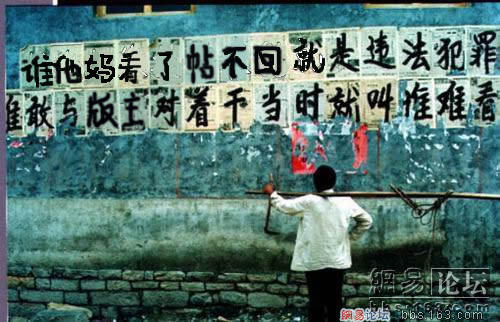 谁他妈看了帖不回就是违法犯罪
谁敢与版主对着干当时就叫谁难看
網易论坛
bbs.163.com
網易论坛 bbs.163.com